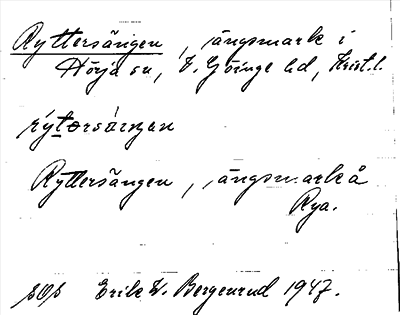 Ryttersängen, ängsmark i
Hörja sn, V. Göinge hd, Krist. l.
rýtersàŋan
Ryttersängen, ängsmark å
Rya.
SOS Erik W. Bergenrud 1947.